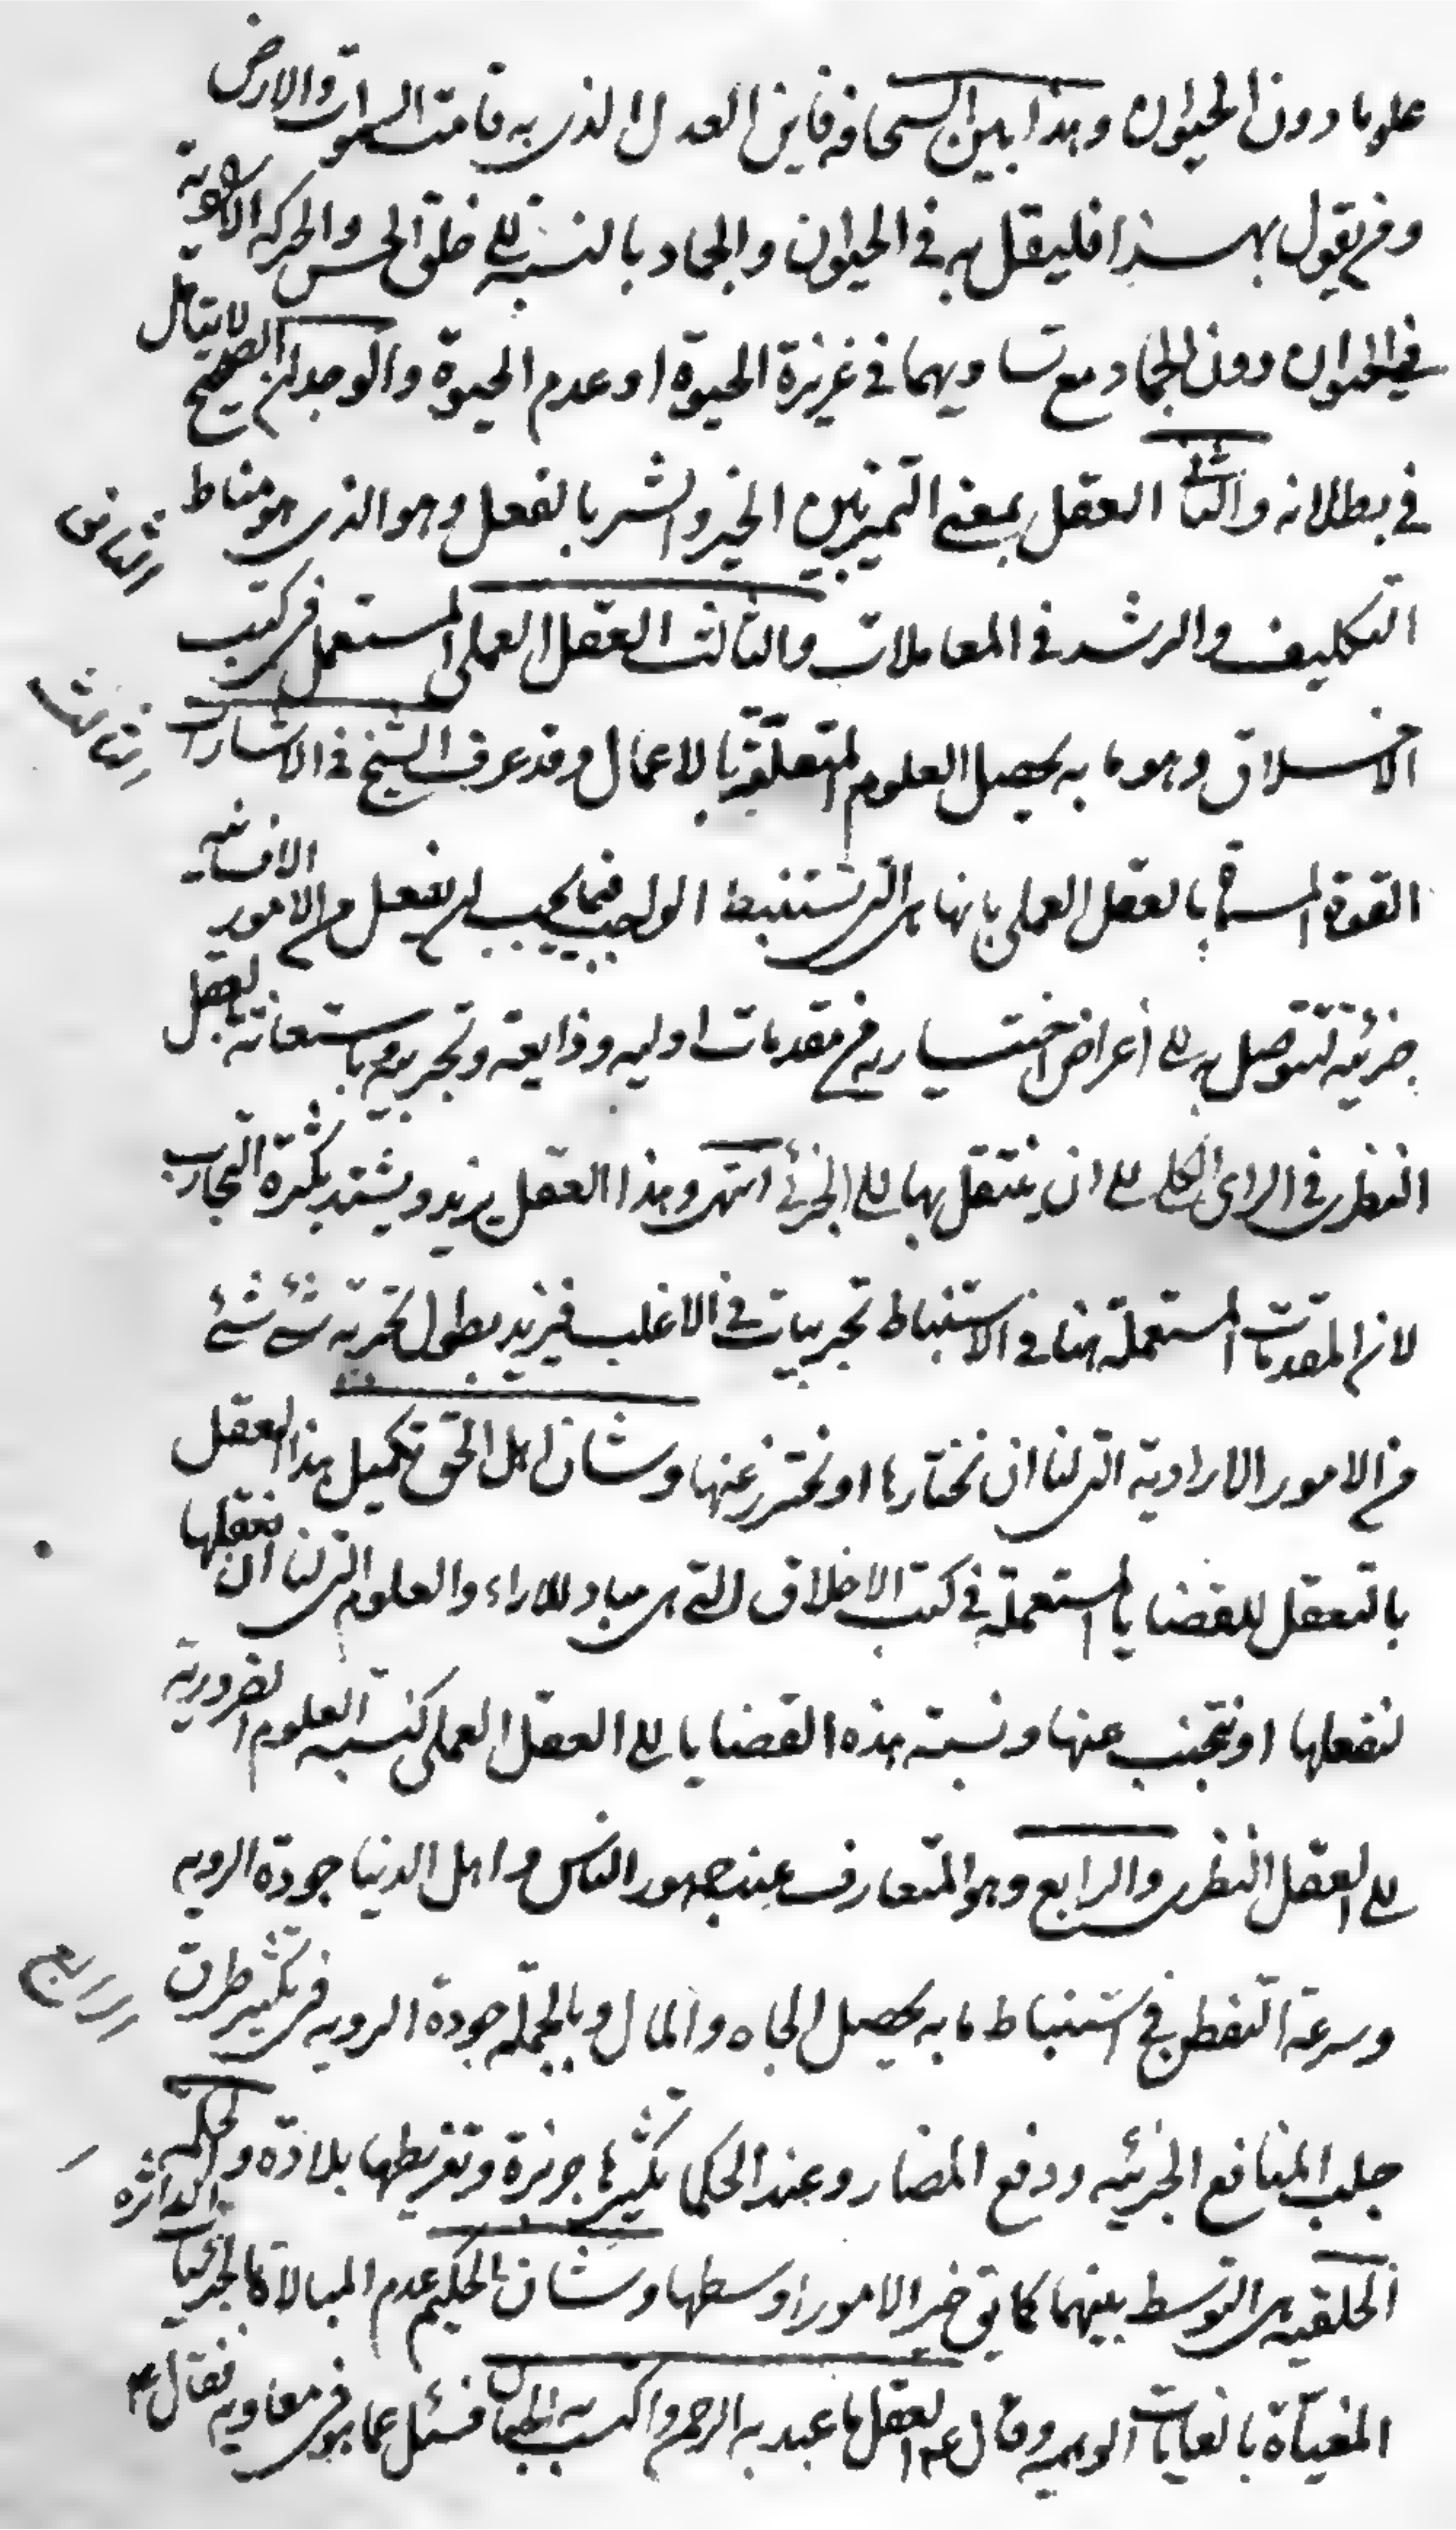 علوما دون الحيوان وهذا بين السخافه فاين العدل الذى به قامت السموات والارض
ومن يقول بهذا فليقل به فى الحيوان والجماد بالنسبة الى خلق الحس والحركه الارادية
فى الحيوان دون الجماد مع تساويهما فى غريزة الحيوة او عدم الحيوة والوجدان الصحيح لا يتأمل
فى بطلانه والثانى العقل بمعنى التميز بين الخير والشر بالفعل وهو الذى هو مناط
الثانى
التكليف والرشد فى المعاملات والثالث العقل العملى المستعمل فى كتب
الثالث
الاخلاق وهو ما به يحصل العلوم المتعلقة بالاعمال وقد عرف الشيخ فى الاشارات
القوة المسماة بالعقل العملى بانها هى التى تستنبط الواجب فيما يجب ان يفعل من الامور الانسانيه
جزئية لتتوصل به الى أغراض اختياريه من مقدمات اوليه وذايعة وتجربيه وباستعانة بالعقل
النظرى فى الراى الكلى الى ان ينتقل بها الى الجزئى انتهى وهذا العقل يزيد ويشتد بكثرة التجارب
لان المقدمات المستعملة هنا فى الاستنباط تجربيات فى الاغلب فيزيد بطول تجربه شئ شئ
من الامور الارادية التى لنا ان نختارها او نحترز عنها وشان اهل الحق تكميل هذا العقل
بالتعقل للقضايا المستعملة فى كتب الاخلاق التى هى مباد للاراء والعلوم التى لنا ان نعقلها
لنفعلها او نتجنب عنها ونسبة هذه القضايا الى العقل العملى كنسبة العلوم الضرورية
الى العقل النظرى والرابع وهو المتعارف عند جمهور الناس واهل الدنيا جودة الرويه
وسرعة التفطن فى استنباط ما به يحصل الجاه والمال وبالجملة جودة الرويه فى تكثير طرق
الرابع
جلب المنافع الجزئيه ودفع المضار وعند الحكما تكثيرها جربزة وتفريطها بلادة والحكمه الدائره
الخلقيه هى التوسط بينهما كما يق خير الامور اوسطها وشان الحكيم عدم المبالاة بالجزئيات
المغياة بالغايات الوهميه وقال ع العقل ما عبد به الرحمن واكتسب به الجنان فسئل عما هو فى معاويه فقال ع